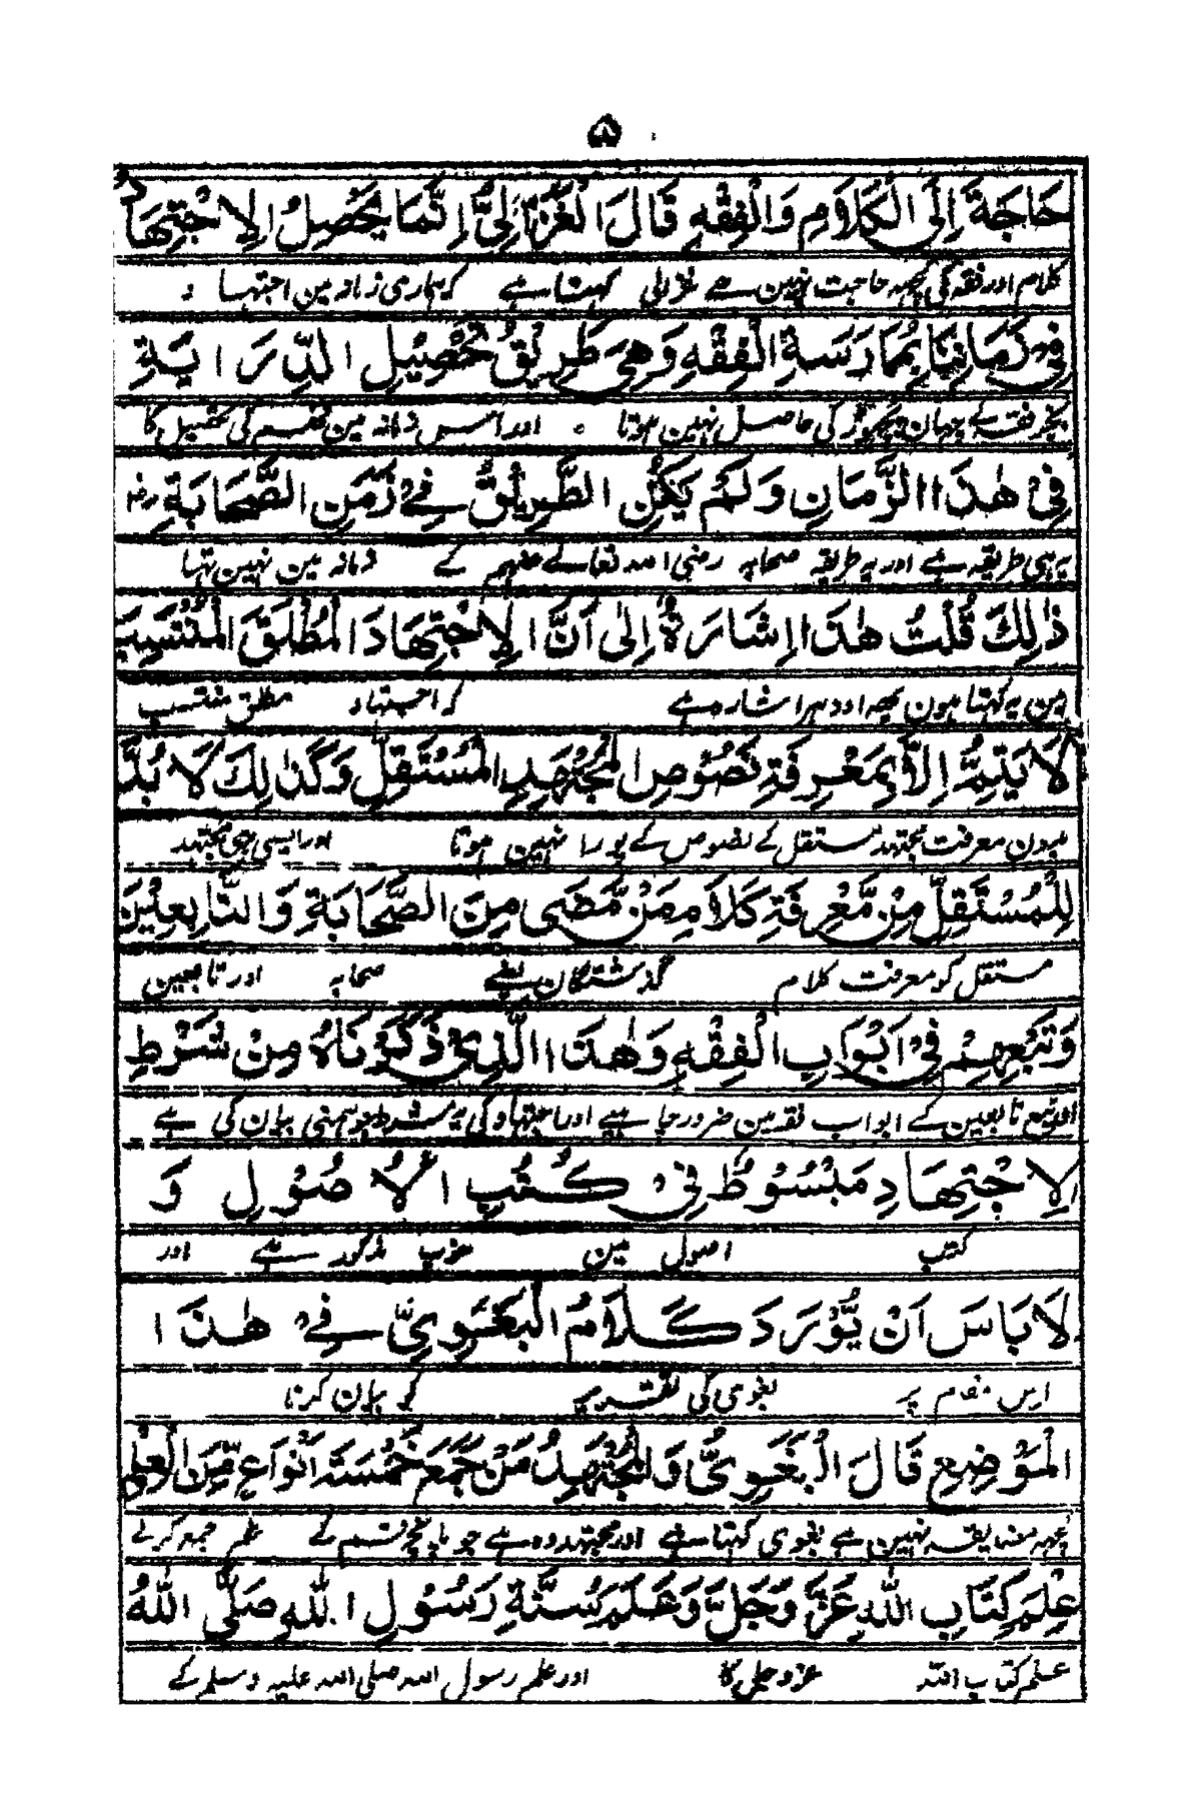 ۵
حَاجَةَ اِلَى الْكَلَامِ وَالْفِقْهِ قَالَ الْغَزَالِيُّ اِنَّمَا يَحْصِلُ الْاِجْتِهَادُ
کلام اور فقہ کی کچھ حاجت نہین ہے غزالی کہتا ہے کہ ہماری زمانہ مین اجتہاد
فِيْ زَمَانِنَا بِمُمَارَسَةِ الْفِقْهِ وَهِيَ طَرِيْقُ تَحْصِيْلِ الدِّرَايَةِ
بغیر فقہ کے چہان پچھوڑ کی حاصل نہین ہوتا ۔ اور اس زمانہ مین فہم کی تحصیل کا
فِيْ هٰذَا الزَّمَانِ وَلَمْ يَكُنِ الطَّرِيْقُ فِيْ زَمَنِ الصَّحَابَةِ رض
یہی طریقہ ہے اور یہ طریقہ صحابہ رضی اللہ تعالے عنہم کے زمانہ مین نہین تہا
ذٰلِكَ قُلْتُ هٰذَا اِشَارَةٌ اِلٰى اَنَّ الْاِجْتِهَادَ الْمُطْلَقَ الْمُنْتَسِبَ
مین یہ کہتا ہون یہہ اودہر اشارہ ہے کہ اجتہاد مطلق منتسب
لَا يَتِمُّ اِلَّا بِمَعْرِفَةِ نُصُوْصِ الْمُجْتَهِدِ الْمُسْتَقِلِّ وَكَذٰلِكَ لَا بُدَّ
بدون معرفت مجتہد مستقل کے نصوص کے پورا نہین ہوتا اور ایسی ہی مجتہد
لِلْمُسْتَقِلِّ مِنْ مَّعْرِفَةِ كَلَامِ مَنْ مَّضٰى مِنَ الصَّحَابَةِ وَالتَّابِعِيْنَ
مستقل کو معرفت کلام گذشتگان یعنے صحابہ اور تابعین
وَتَبَعِهِمْ فِيْ اَبْوَابِ الْفِقْهِ وَهٰذَا الَّذِيْ ذَكَرْنَاهُ مِنْ شَرْطِ
اور تبع تابعین کے ابواب فقہ مین ضرور چاہیے اور اجتہاد کی یہ شرط جو ہمنی بیان کی ہے
الْاِجْتِهَادِ مَبْسُوْطٌ فِيْ كُتُبِ الْاُصُوْلِ وَ
کتب اصول مین خوب مذکور ہے اور
لَا بَاسَ اَنْ يُّوْرَدَ كَلَامُ الْبَغَوِيِّ فِيْ هٰذَا
اس مقام پر بغوی کی تقریر کو بیان کرنا
الْمَوْضِعِ قَالَ الْبَغَوِيُّ وَالْمُجْتَهِدُ مَنْ جَمَعَ خَمْسَةَ اَنْوَاعٍ مِّنَ الْعِلْمِ
کچھہ مضایقہ نہین ہے بغوی کہتا ہے اور مجتہد وہ ہے جو پانچ قسم کے علم جمع کرلے
عِلْمَ كِتَابِ اللّٰهِ عَزَّ وَجَلَّ وَعِلْمَ سُنَّةِ رَسُوْلِ اللّٰهِ صَلَّى اللّٰهُ
علم کتاب اللہ عزوجل کا اور علم رسول اللہ صلی اللہ علیہ وسلم کے